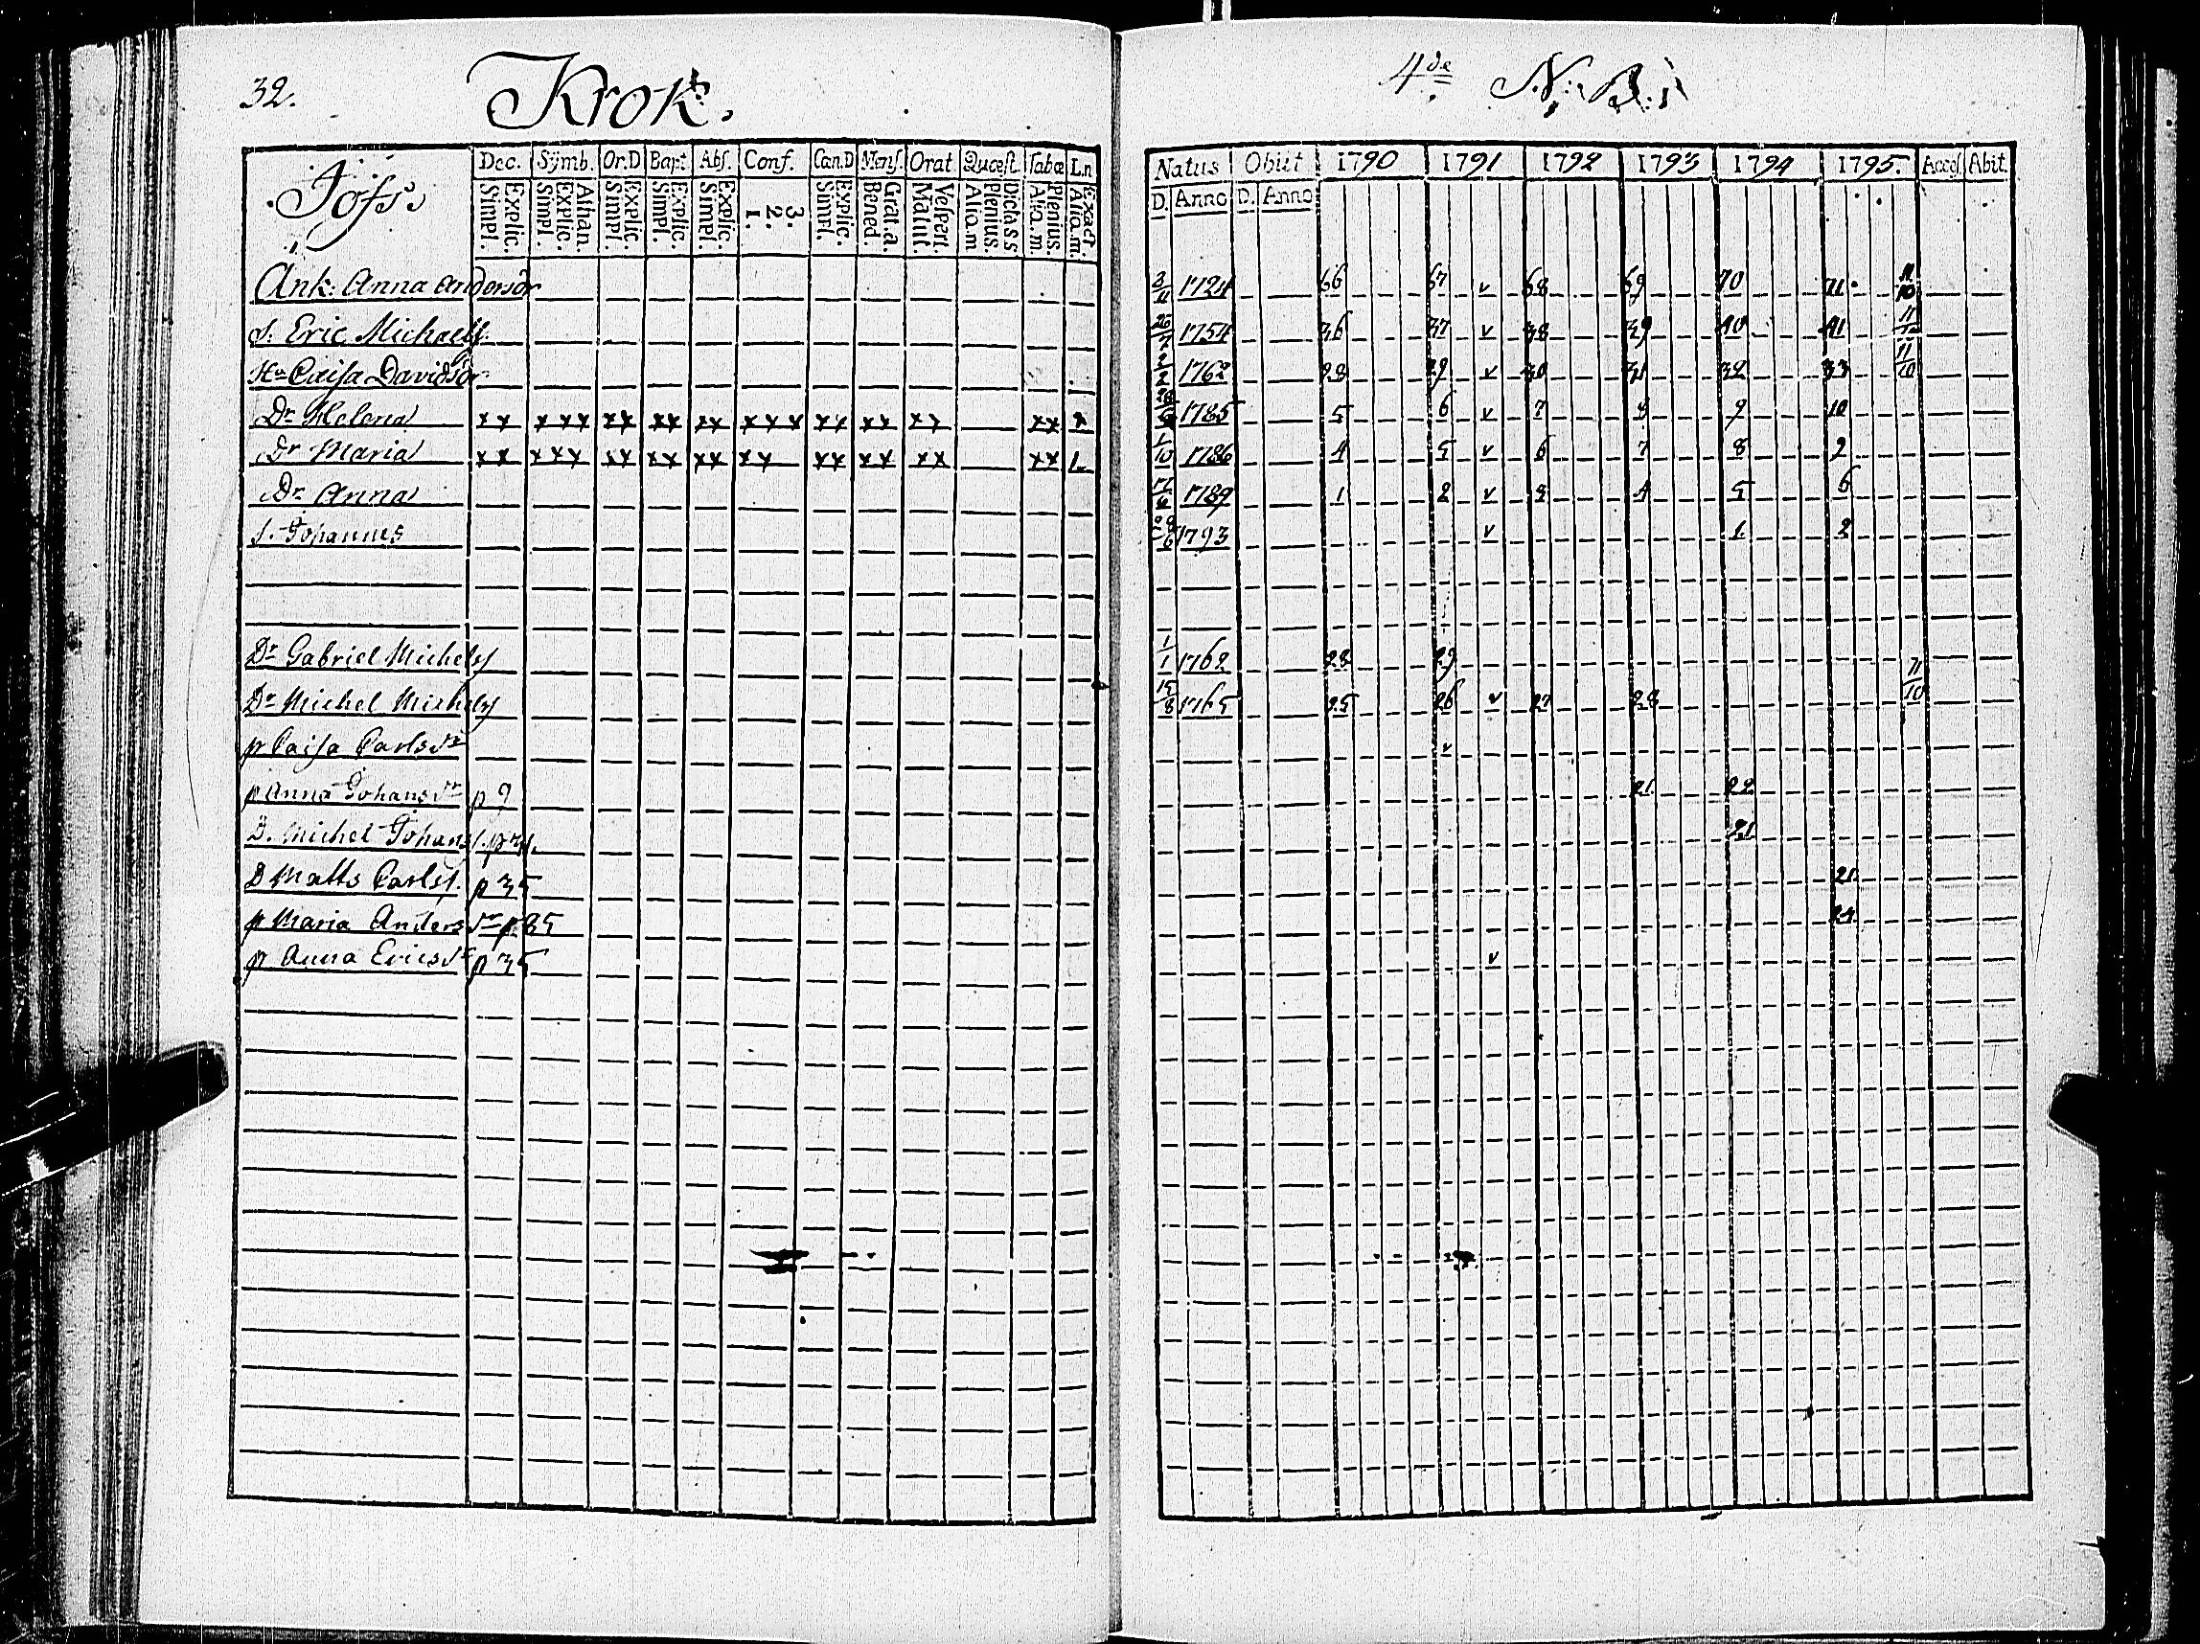 32. Krok. 4de N: B:
Jöfs. Dec. Symb. Or.D Bapt Abs. Conf. Can.D Mens. Orat Quæst. Tabæ Ln Natus Obiit 1790 1791 1792 1793 1794 1795. Access. Abit.
Simpl. Explic. Simpl. Explic. Athan. Simpl. Explic. Simpl. Explic. Simpl. Explic. 1. 2. 3. Simpl. Explic. Bened. Grat.a. Matut. Vespert. Aliq.m Plenius. Aliq.m. Plenius. Aliq.m. Exact D. Anno D. Anno
Ank: Anna Andersdr 3/11 1724 66 67 v 68 69 70 71 11/10
S. Eric Michaelss. 1754 36 37 v 38 39 40 41
Hu Caisa Davidsdr 1762 28 29 v 30 31 32 33 11/10
Dr Helena xx xxx xx xx xx xxx xx xx xx xx x 1785 5 6 v 7 8 9 10
Dr Maria xx xxx xx xx xx xx xx xx xx xx 1/10 1786 4 5 v 6 7 8 9
Dr Anna 1789 1 2 v 3 4 5 6
S. Johannes 1793 v 1 2
Dr Gabriel Michelss 1/1 1762 28 29
Dr Michel Michelss 15/8 1765 25 26 v 27 28 11/10
p Caisa Carlsdr v
p Anna Johansdr p 9 21 22
D. Michel Johanss. 21
D Matts Carlss. p 35 21
p Maria Andersdr p. 35 24
p Anna Ericsdr p 35 v